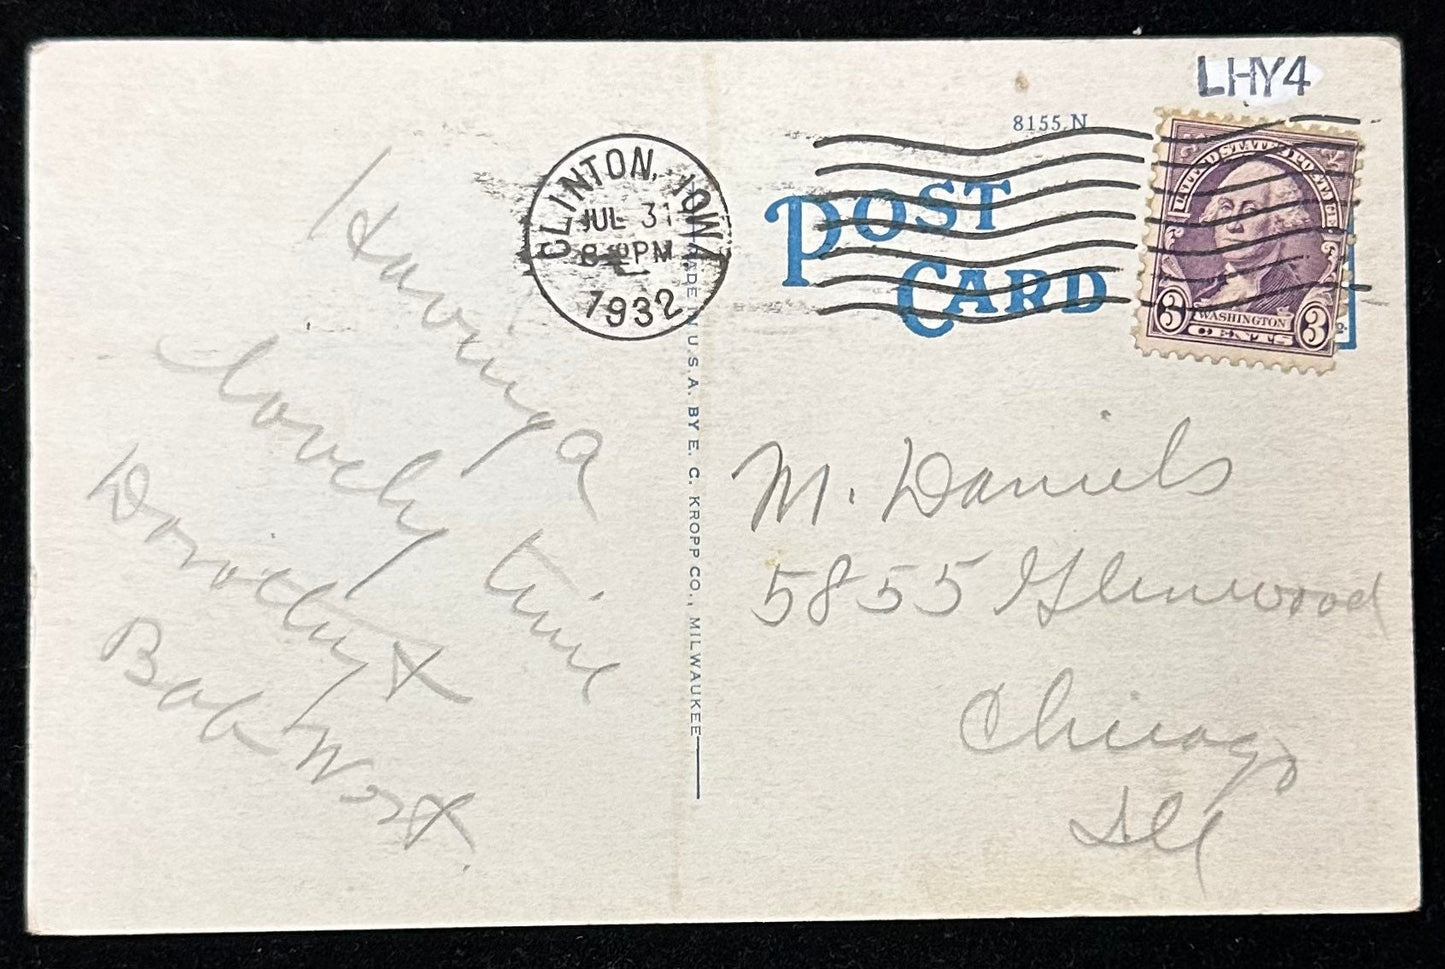 LHY4
8155 N
POST
CARD
CLINTON, IOWA
JUL 31
PM
1932
UNITED STATES POSTAGE
WASHINGTON
3 CENTS 3
MADE IN U.S.A. BY E. C. KROPP CO., MILWAUKEE
Having a
lovely time
Dorothy &
Bob Wort.
M. Daniels
5855 Glenwood
Chicago
Ill